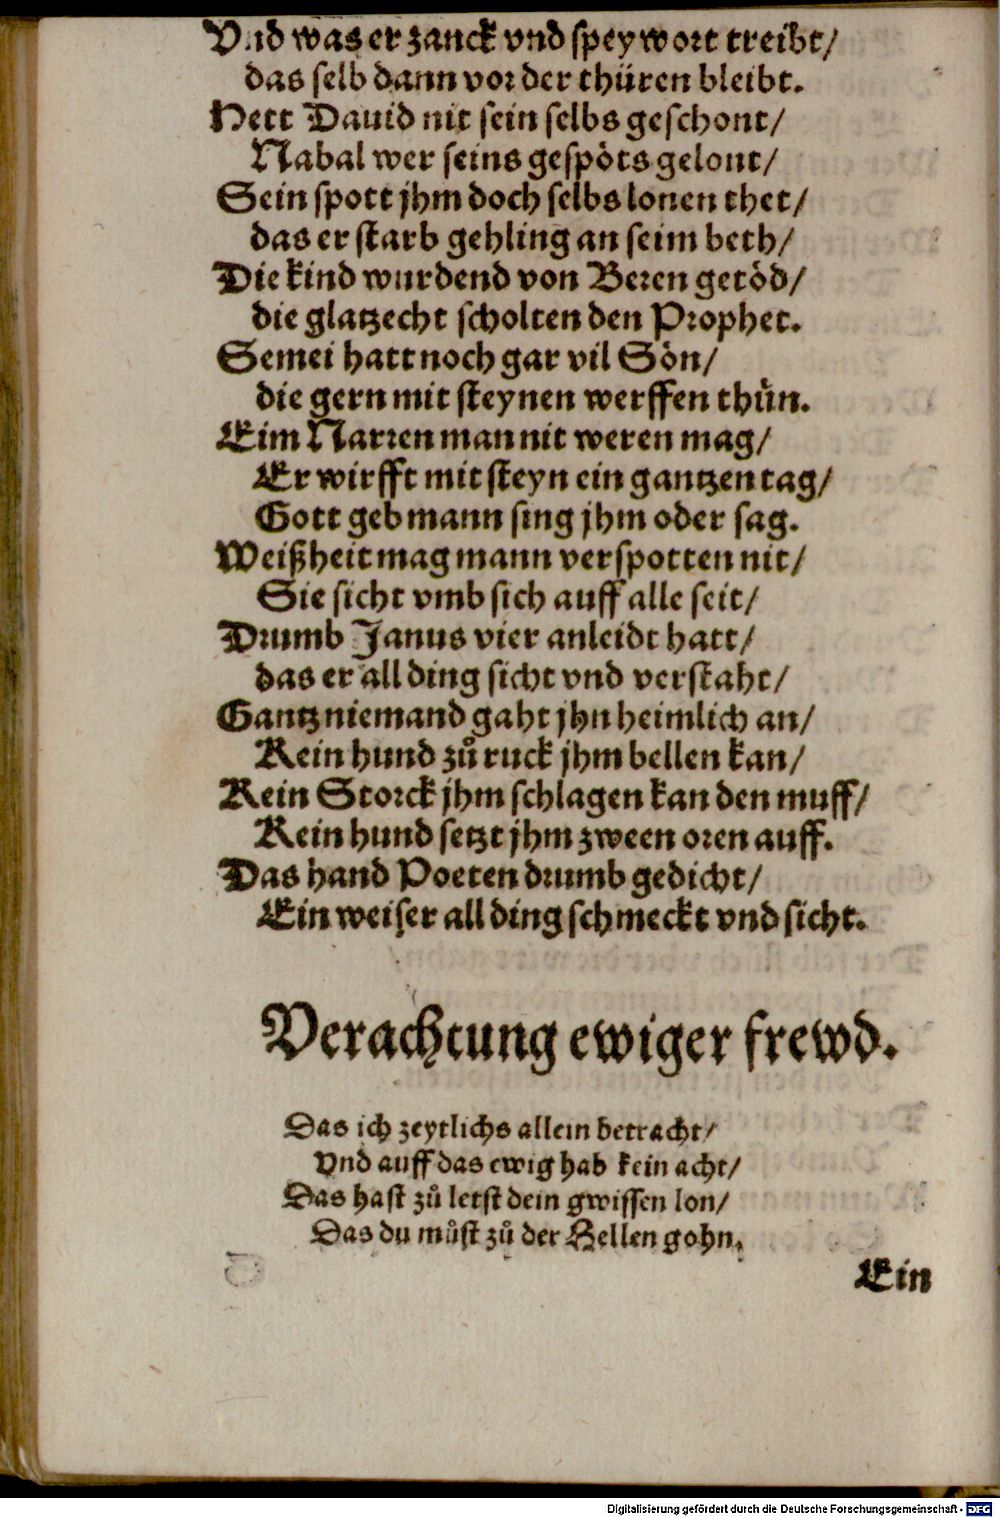 Vnd was er zanck vnd spey wort treibt/
das selb dann vor der thüren bleibt.
Hett Dauid nit sein selbs geschont/
Nabal wer seins gespöts gelont/
Sein spott jhm doch selbs lonen thet/
das er starb gehling an seim beth/
Die kind wurdend von Beren getöd/
die glatzecht scholten den Prophet.
Semei hatt noch gar vil Sön/
die gern mit steynen werffen thůn.
Eim Narren man nit weren mag/
Er wirfft mit steyn ein gantzen tag/
Gott geb mann sing jhm oder sag.
Weißheit mag mann verspotten nit/
Sie sicht vmb sich auff alle seit/
Drumb Janus vier anleidt hatt/
das er all ding sicht vnd verstaht/
Gantz niemand gaht jhn heimlich an/
Kein hund zů ruck jhm bellen kan/
Kein Storck jhm schlagen kan den muff/
Kein hund setzt jhm zween oren auff.
Das hand Poeten drumb gedicht/
Ein weiser all ding schmeckt vnd sicht.
Verachtung ewiger frewd.
Das ich zeytlichs allein betracht/
Vnd auff das ewig hab kein acht/
Das hast zů letst dein gwissen lon/
Das du můst zů der Hellen gohn.
Ein
Digitalisierung gefördert durch die Deutsche Forschungsgemeinschaft - DFG